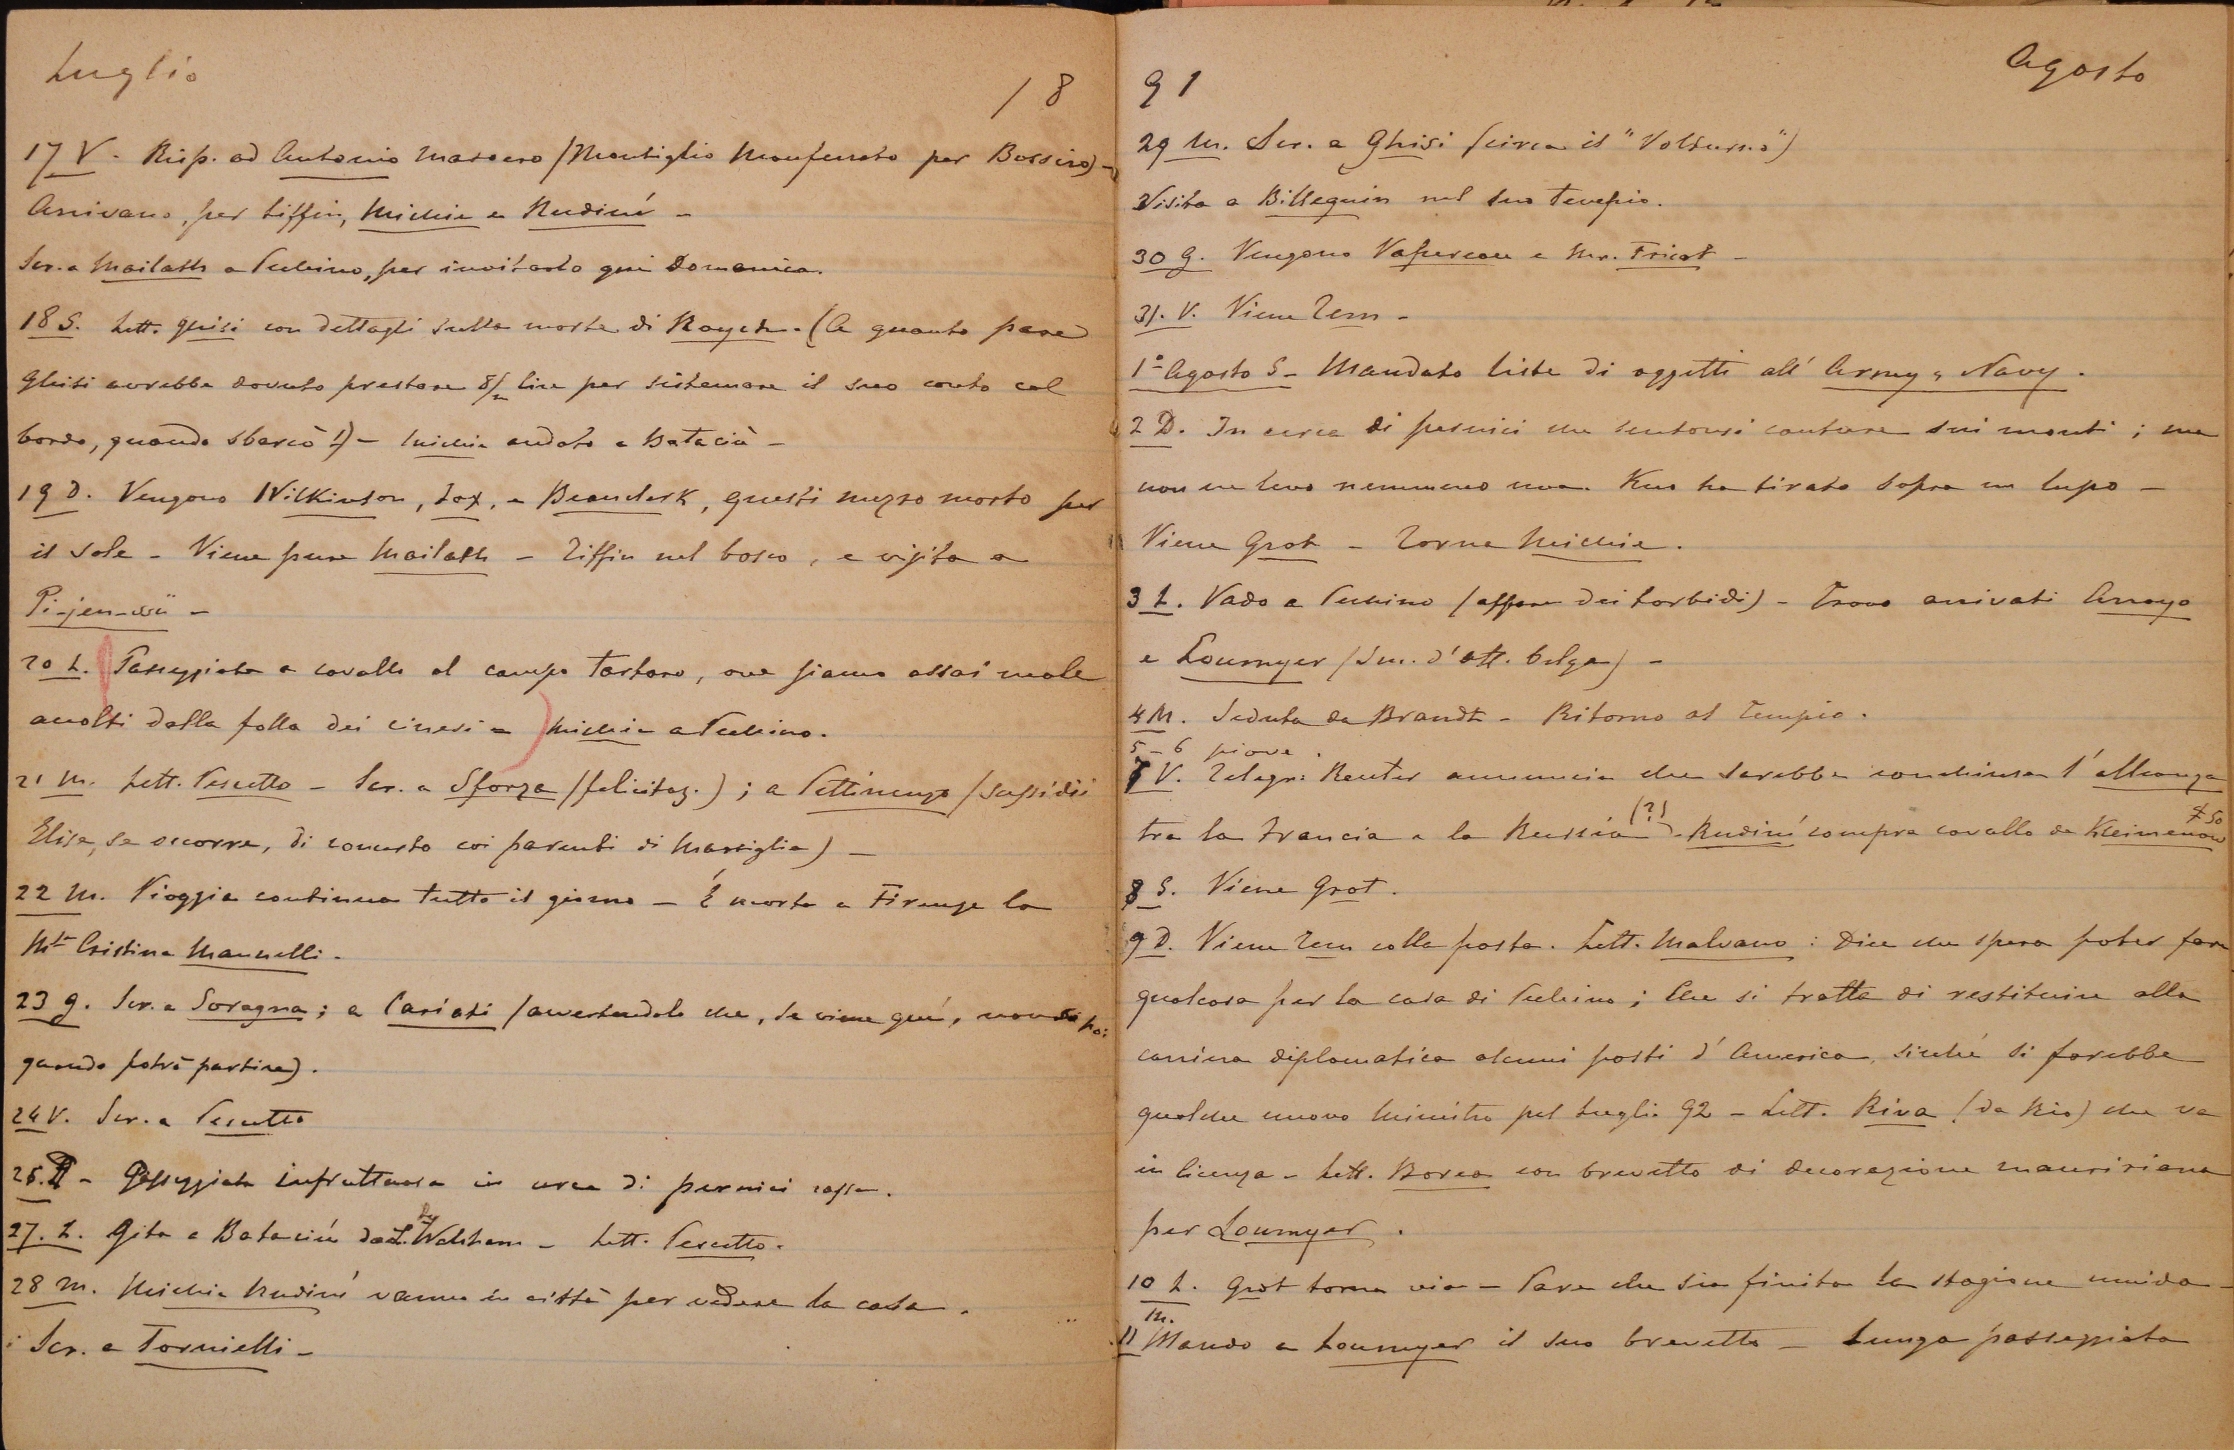 Luglio
18
17 V. Risp. ad Antonio Masoero (Montiglio Monferrato per Bossiro) -
Arrivano, per tiffin, Michie e Rudinì -
Scr. a Mailath a Pechino, per invitarlo quì Domenica.
18 S. Lett. Ghisi con dettagli sulla morte di Roych. (A quanto pare
Ghisi avrebbe dovuto prestare 8/m lire per sistemare il suo conto col
bordo, quando sbarcò!) - Michie andato a Bataciù -
19 D. Vengono Wilkinson, Fox, e Beauclerk, questi mezzo morto per
il sole - Viene pure Mailath - Tiffin nel bosco, e visita a
Pi-jen-ssü -
20 L. Passeggiata a cavallo al campo tartaro, ove siamo assai male
accolti dalla folla dei cinesi - Michie a Pechino.
21 M. Lett. Pescetto - Scr. a Sforza (felicitaz.); a Pettinengo (sussidii
Elisa, se occorre, di concerto coi parenti di Marsiglia) -
22 M. Pioggia continua tutto il giorno - È morta a Firenze la
Msa Cristina Mannelli.
23 G. Scr. a Soragna; a Cariati (avvertendolo che, se viene quì, non so poi
quando potrà partire).
24 V. Scr. a Pescetto
26. D - Passeggiata infruttuosa in cerca di pernici rosse.
27. L. Gita a Bataciù da Ly Walsham - Lett. Pescetto.
28 M. Michie Rudinì vanno in città per vedere la casa.
Scr. a Tornielli -
91
Agosto
29 M. Scr. a Ghisi (circa il "Volturno")
Visita a Billequin nel suo tempio.
30 G. Vengono Vapereau e Mr. Fricot -
31. V. Viene Zem -
1° Agosto S - Mandato liste di oggetti all' Army & Navy.
2 D. In cerca di pernici che sentonsi cantare sui monti; ma
non ne levo nemmeno una. Kuo ha tirato sopra un lupo -
Viene Grot - Torna Michie.
3 L. Vado a Pechino (affare dei torbidi) - Trovo arrivati Arroyo
e Loumyer (Inc. d'aff. belga) -
4 M. Seduta da Brandt - Ritorno al Tempio.
5 - 6 piove.
7 V. Telegr: Reuter annuncia che sarebbe conchiusa l'alleanza
tra la Francia e la Russia (?) - Rudinì compra cavallo da Kleimenow $ 50
8 S. Viene Grot.
9 D. Viene Zem colla posta. Lett. Malvano: Dice che spera poter fare
qualcosa per la casa di Pechino; che si tratta di restituire alla
carriera diplomatica alcuni posti d'America, sicchè si farebbe
qualche nuovo Ministro pel Luglio 92 - Lett. Riva (da Rio) che va
in licenza - Lett. Borea con brevetto di decorazione mauriziana
per Loumyer.
10 L. Grot torna via - Pare che sia finita la stagione umida -
11 M. Mando a Loumyer il suo brevetto - Lunga passeggiata